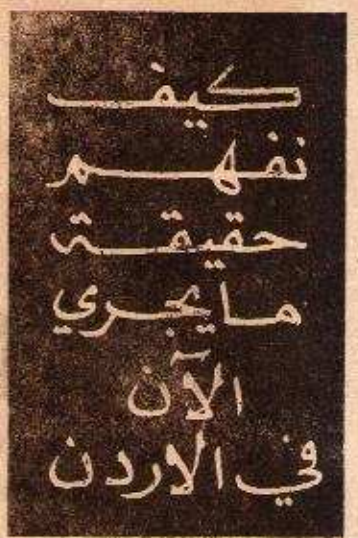 كيف
نفهم
حقيقة
ما يجري
الآن
في الاردن